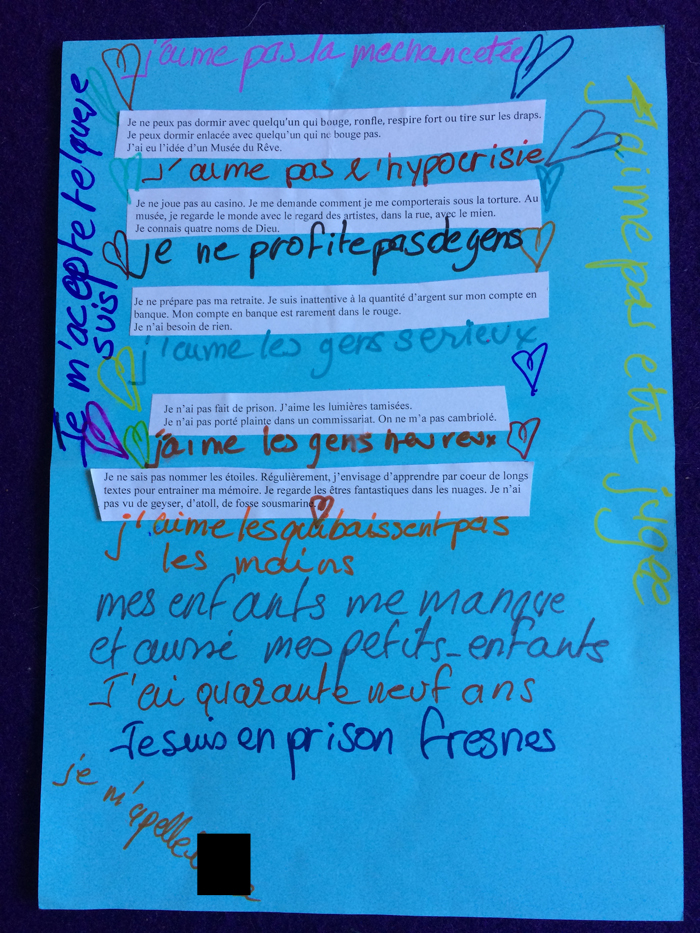 j'aime pas la mechancetée
Je ne peux pas dormir avec quelqu'un qui bouge, ronfle, respire fort ou tire sur les draps.
Je peux dormir enlacée avec quelqu'un qui ne bouge pas.
J'ai eu l'idée d'un Musée du Rêve.
J'aime pas l'hypocrisie
Je ne joue pas au casino. Je me demande comment je me comporterais sous la torture. Au
musée, je regarde le monde avec le regard des artistes, dans la rue, avec le mien.
Je connais quatre noms de Dieu.
je ne profite pas de gens
Je ne prépare pas ma retraite. Je suis inattentive à la quantité d'argent sur mon compte en
banque. Mon compte en banque est rarement dans le rouge.
Je n'ai besoin de rien.
j'aime les gens serieux
Je n'ai pas fait de prison. J'aime les lumières tamisées.
Je n'ai pas porté plainte dans un commissariat. On ne m'a pas cambriolé.
j'aime les gens heureux
Je ne sais pas nommer les étoiles. Régulièrement, j'envisage d'apprendre par coeur de longs
textes pour entrainer ma mémoire. Je regarde les êtres fantastiques dans les nuages. Je n'ai
pas vu de geyser, d'atoll, de fosse sousmarine.
j'aime les qui baissent pas
les mains
mes enfants me manque
et aussé mes petits-enfants
J'ai quarante neuf ans
Je suis en prison fresnes
je m'apelle
Je m'acepte tel que je
suis
J'aime pas etre jugee